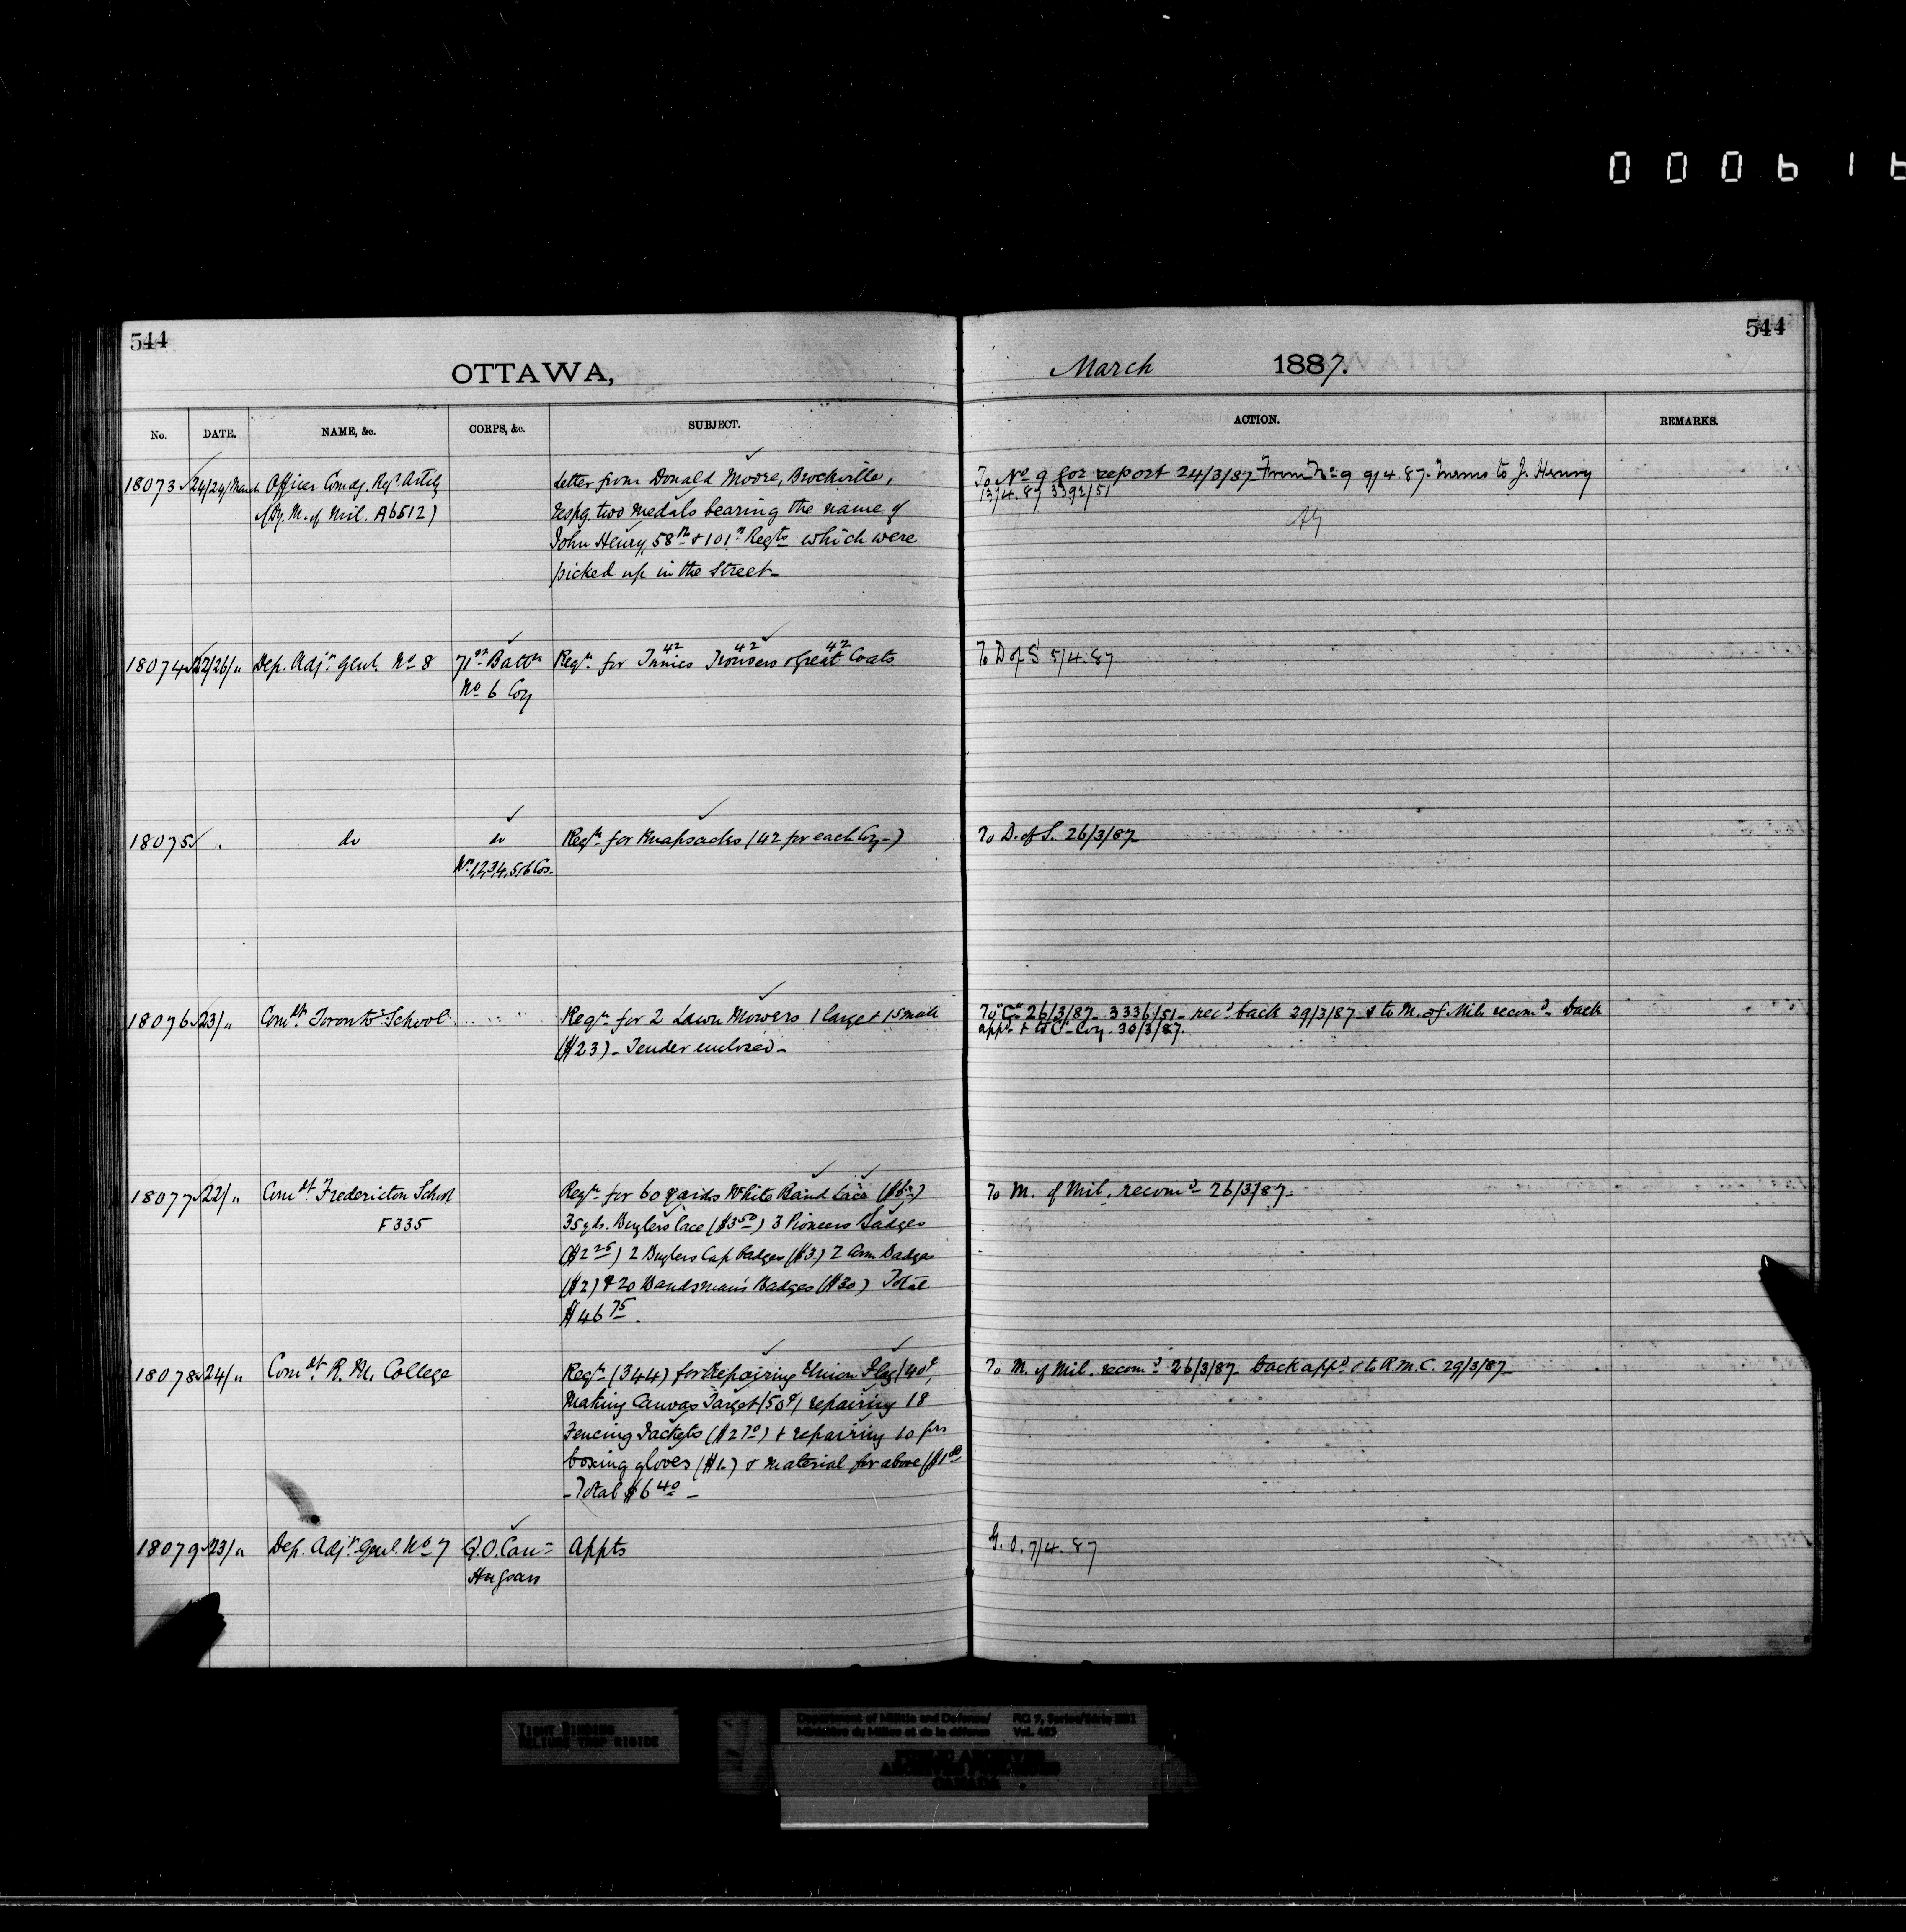 000616
544
544
OTTAWA,
March 1887.
No. DATE. NAME, &c. CORPS, &c. SUBJECT. ACTION. REMARKS.
18073 24/24/March Officer Comdg. Regt Artily
(Dy. M. of Mil. A6512)
Letter from Donald Moore, Brockville,
respg. two medals bearing the name of
John Henry, 58th & 101st Regts which were
picked up in the Street-
To No 9 for report 24/3/87 From No 9 9/4.87. Mems to J. Henry
13/4.87 3392/51
18074 22/26/" Dep. Adjt Genl. No 8 71st Battn
No 6 Coy
42 42 42
Reqn for Tunics Trousers & Great Coats
To D of S 5/4.87
18075 " do do
Nos 1,2,3,4,5,6 Cos-
Reqn for Knapsacks (42 for each Coy-)
To D. of S. 26/3/87
18076 23/" Comdt Toronto School
Reqn for 2 Lawn Mowers 1 large & 1 small
($23) - Tender enclosed-
To "C" 26/3/87- 3336/51- recd back 29/3/87 & to M. of Mil. recomd- back
appd & to "C" Coy 30/3/87.
18077 22/" Comdt Fredericton School
F335
Reqn for 60 yards White Band Lace ($6-)
35 yds. Buglers lace ($3 50) 3 Pioneers Badges
($2 25) 2 Buglers Cap badges ($3.) 2 Arm Badges
($2) & 20 Bandsman's Badges ($30) Total
$46 75.
To M. of Mil. recomd- 26/3/87-
18078 24/" Comdt R. M. College
Reqn (344) for Repairing Union Flag (40c,
Making Canvas Target (50c) repairing 18
Fencing Jackets ($2 70) & repairing 10 prs
boxing gloves ($1.) & material for above ($1 80
- Total $6 40 -
To M. of Mil. recomd- 26/3/87- back appd & to R.M.C. 29/3/87-
18079 23/" Dep. Adjt Genl. No 7 Q.O. Can=
Hussars
Appts
G.O. 7/4.87
TIGHT BINDING
RELIURE TROP RIGIDE
Department of Militia and Defence/ RG 9, Series/Série
Ministère du Milice et de la défense Vol.
PUBLIC ARCHIVES
ARCHIVES PUBLIQUES
CANADA